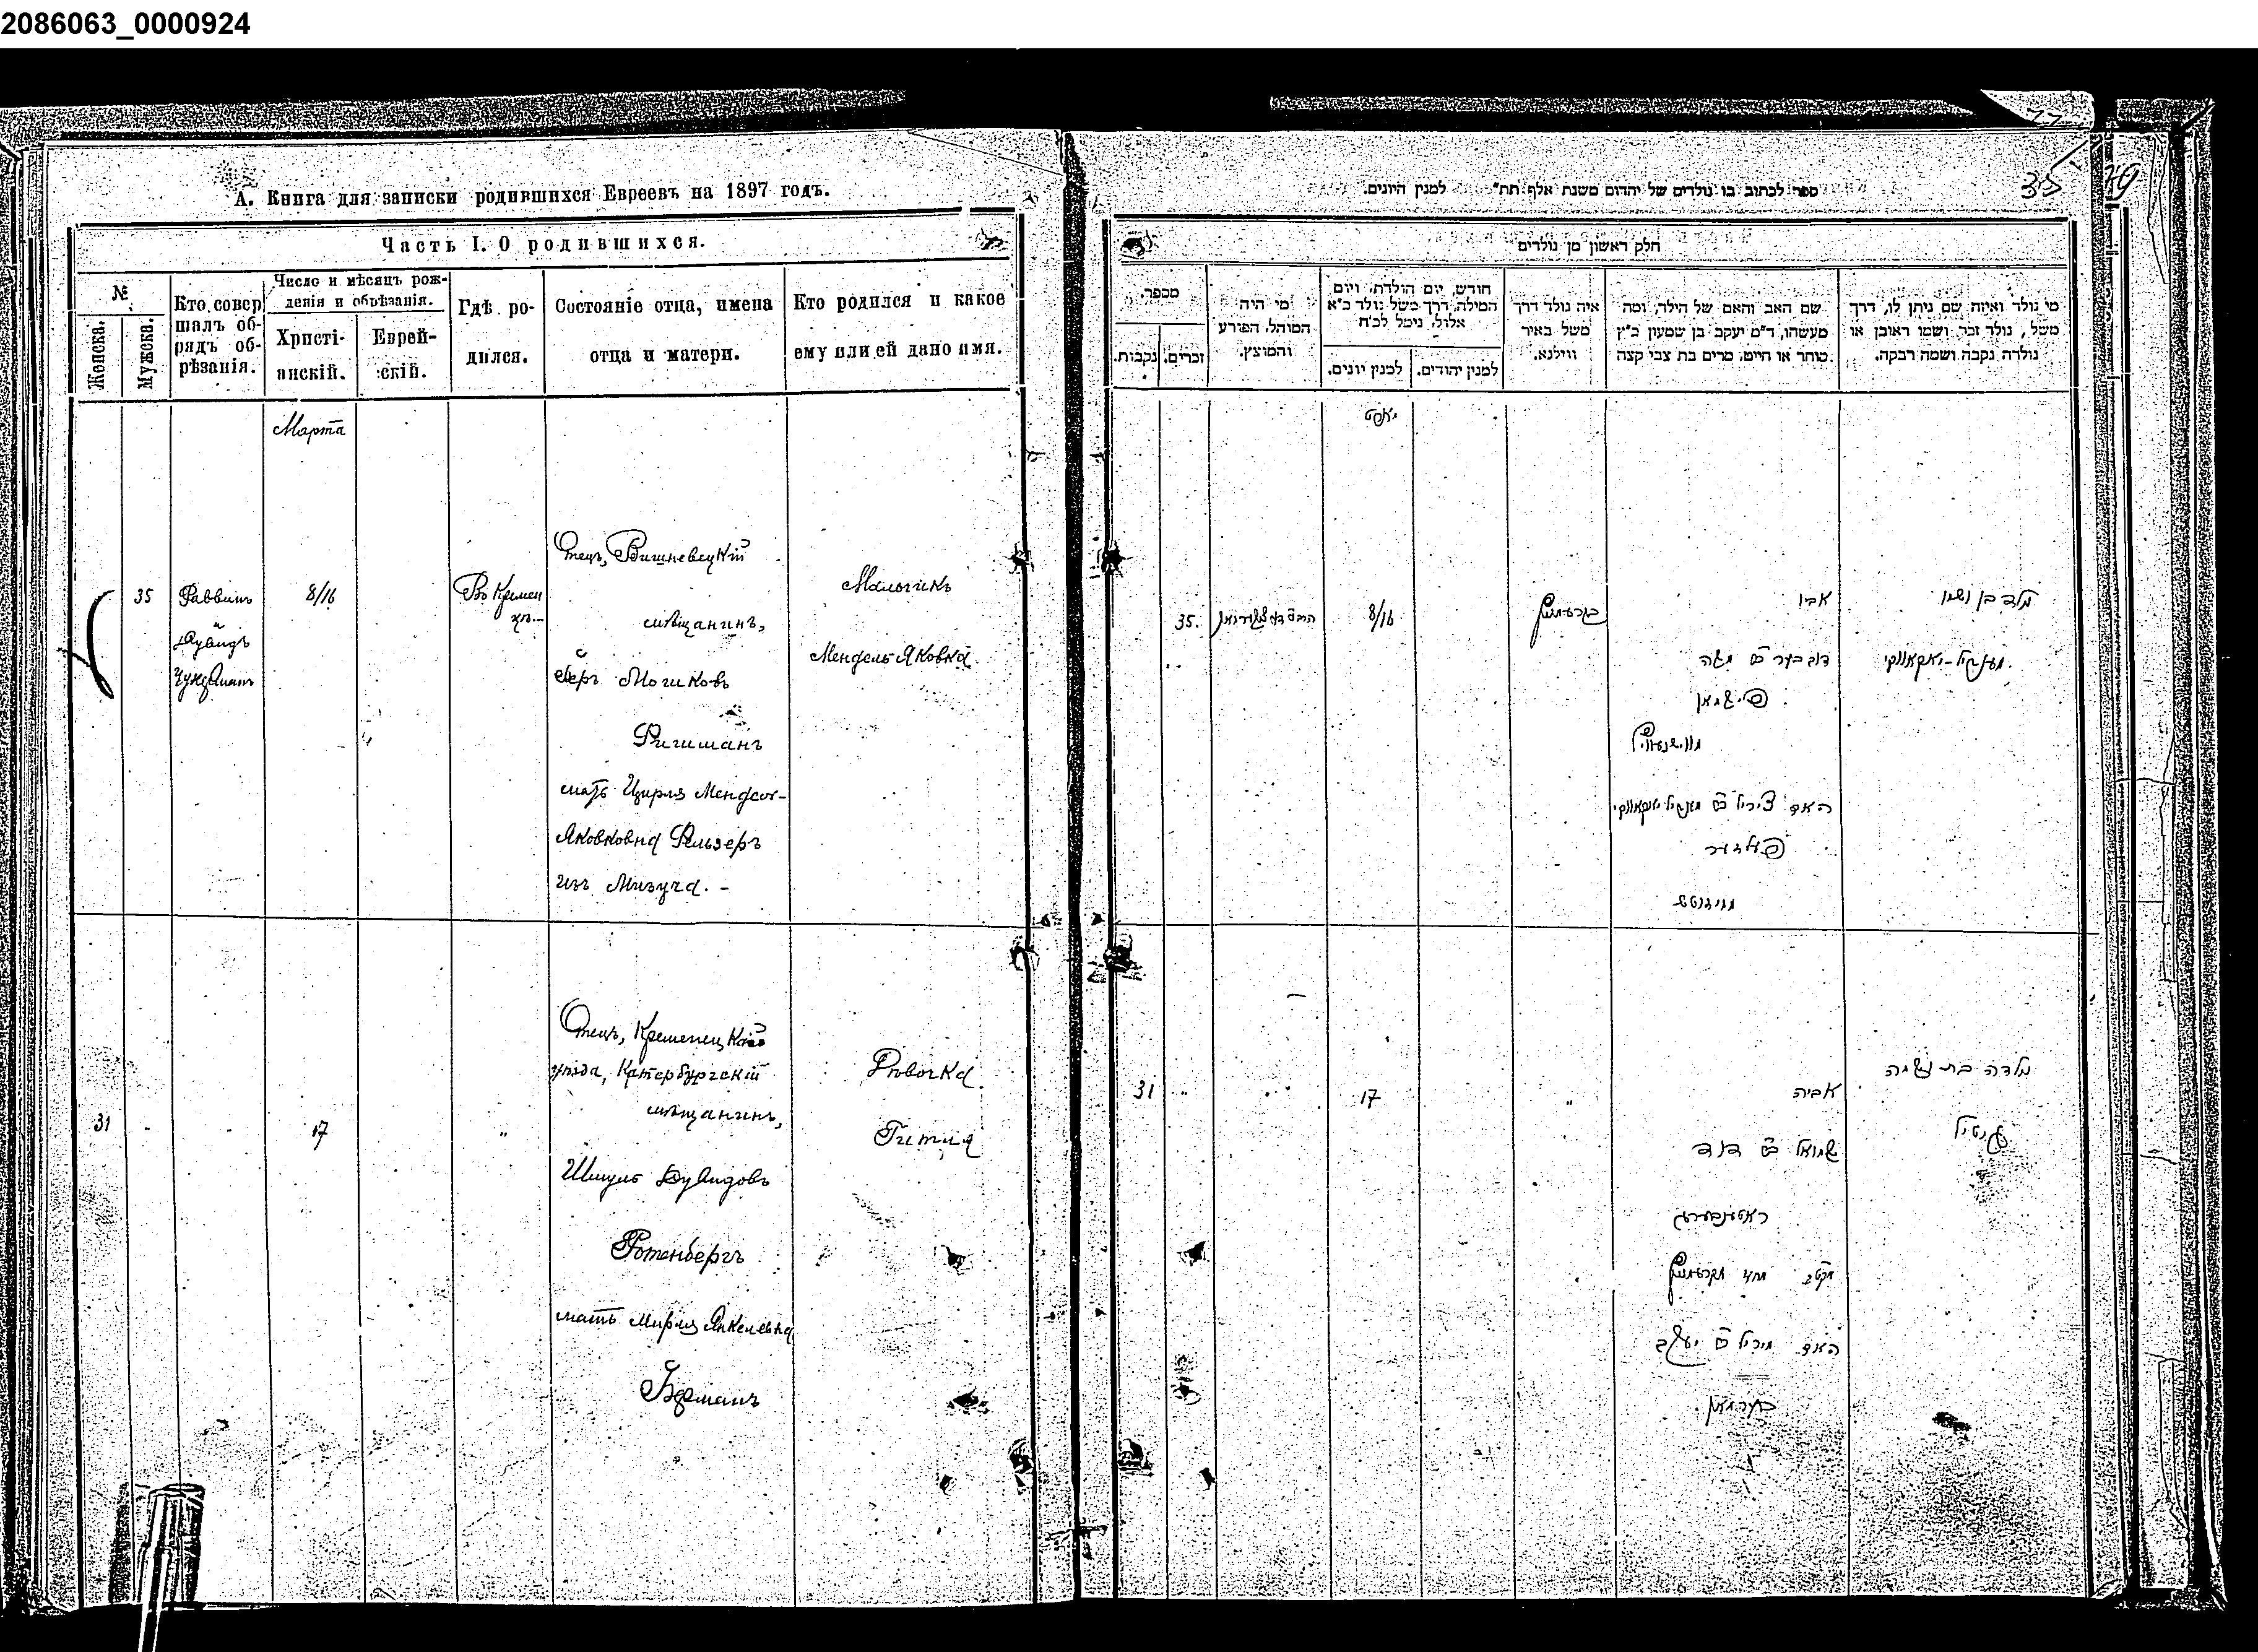 2086063_0000924
35
А. Книга для записки родившихся Евреевъ на 1897 годъ.
Часть I. О родившихся.
№
Женска.
Мужска.
Кто совер
шалъ об-
рядъ об-
рѣзанія.
Число и мѣсяцъ рож-
денія и обрѣзанія.
Христі-
анскій.
Еврей-
скій.
Гдѣ ро-
дился.
Состояніе отца, имена
отца и матери.
Кто родился и какое
ему или ей дано имя.
Марта
35
Раввинъ
и
Дувидъ
8/16
Въ Кремен
цѣ.-
Отецъ, Вишневецкій
мѣщанинъ,
Беръ
Мошковъ
мать Цирля Мендель-
Яковковна Фельзеръ
изъ Мизуча. -
Мальчикъ
Мендель Яковка
31
17
"
Отецъ, Кременецкаго
уѣзда, Катербургскій
мѣщанинъ,
Шмуль Дувидовъ
Ротенбергъ
мать Мирля Янкелевна
Берманъ
Дѣвочка
Гитля
ספר לכתוב בו נולדים של יהדום משנת אלף תת״ למנין היונים.
חלק ראשון מן נולדים
מספר.
נקבות.
זכרים.
מי היה
המוהל, הפורע
והמוצץ.
חודש, יום הולדת, ויום
המילה, דרך משל נולד כ״א
אלול, נימל לכ״ח
למנין יונים.
למנין יהודים.
איה נולד דרך
משל באיר
ווילנא.
שם האב והאם של הילד, ומה
מעשהו, ד״מ יעקב בן שמעון כ״ץ
סוחר או חייט, מרים בת צבי קצה
מי נולד ואיזה שם ניתן לו, דרך
משל, נולד זכר, ושמו ראובן או
נולדה נקבה ושמה רבקה.
35.
8/16
אביו
דוב בער
פישמאן
האם צירל
פעלזער
נולד בן ושמו
מענדיל-יאקאווקי
31
"
17
"
אביה
שמואל
דוד
ראטענבערג
האם מירל
יעקב
בערמאן
נולדה בת ושמה
גיטיל